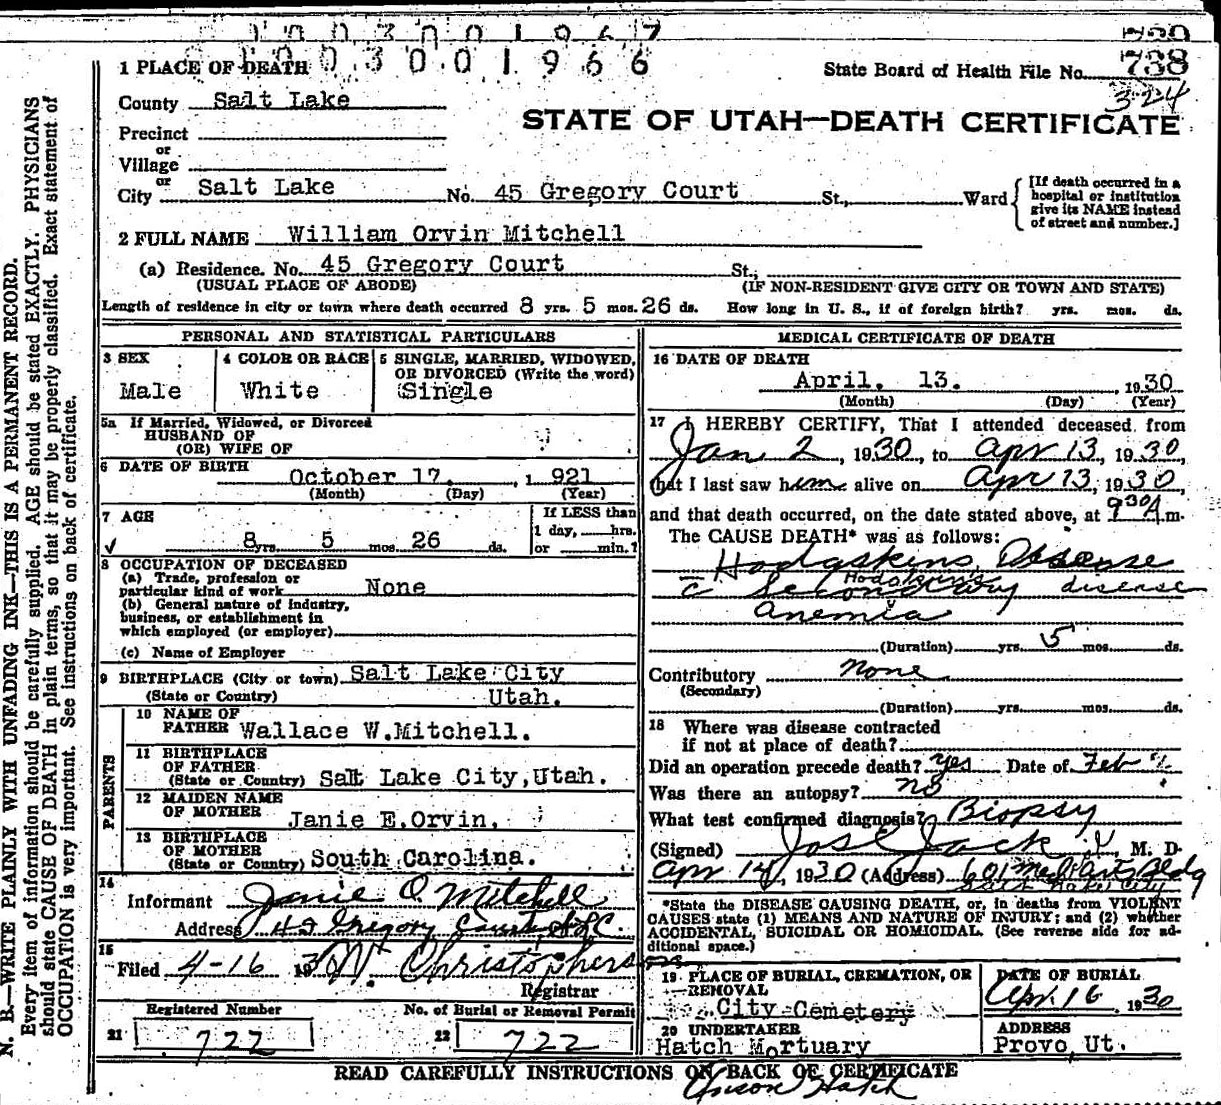 1 0 0 3 0 0 1 9 6 7
1 0 0 3 0 0 1 9 6 6
1 PLACE OF DEATH
State Board of Health File No. 738
324
County Salt Lake
STATE OF UTAH—DEATH CERTIFICATE
Precinct
or
Village
or
City Salt Lake No. 45 Gregory Court St., Ward
[If death occurred in a
hospital or institution
give its NAME instead
of street and number.]
2 FULL NAME William Orvin Mitchell
(a) Residence. No. 45 Gregory Court St.,
(USUAL PLACE OF ABODE) (IF NON-RESIDENT GIVE CITY OR TOWN AND STATE)
Length of residence in city or town where death occurred 8 yrs. 5 mos. 26 ds. How long in U. S., if of foreign birth? yrs. mos. ds.
PERSONAL AND STATISTICAL PARTICULARS
3 SEX
Male
4 COLOR OR RACE
White
5 SINGLE, MARRIED, WIDOWED,
OR DIVORCED (Write the word)
Single
5a If Married, Widowed, or Divorced
HUSBAND OF
(OR) WIFE OF
6 DATE OF BIRTH
October 17, 1 921
(Month) (Day) (Year)
7 AGE
8 yrs. 5 mos. 26 ds.
If LESS than
1 day, hrs.
or min.?
8 OCCUPATION OF DECEASED
(a) Trade, profession or
particular kind of work None
(b) General nature of industry,
business, or establishment in
which employed (or employer)
(c) Name of Employer
9 BIRTHPLACE (City or town) Salt Lake City
(State or Country) Utah.
PARENTS
10 NAME OF
FATHER Wallace W.Mitchell.
11 BIRTHPLACE
OF FATHER
(State or Country) Salt Lake City,Utah.
12 MAIDEN NAME
OF MOTHER Janie E.Orvin.
13 BIRTHPLACE
OF MOTHER
(State or Country) South Carolina.
14
Informant Janie O. Mitchell
Address 45 Gregory Court, SLC.
15
Filed 4-16 193 W. Christopherson
Registrar
Registered Number
21 722
No. of Burial or Removal Permit
22 722
MEDICAL CERTIFICATE OF DEATH
16 DATE OF DEATH
April. 13. 1930
(Month) (Day) (Year)
17 I HEREBY CERTIFY, That I attended deceased from
Jan 2, 1930, to Apr 13, 1930,
that I last saw him alive on Apr 13, 1930,
and that death occurred, on the date stated above, at 930A m.
The CAUSE DEATH* was as follows:
Hodgskins Disease
Hodgkin's disease
c Secondary
Anemia
(Duration) yrs. 5 mos. ds.
Contributory None
(Secondary)
(Duration) yrs. mos. ds.
18 Where was disease contracted
if not at place of death?
Did an operation precede death? Yes Date of Feb
Was there an autopsy? no
What test confirmed diagnosis? Biopsy
(Signed) Jos E Jack, M. D.
Apr 14, 1930 (Address) 601 Med Arts Bldg
Salt Lake City
*State the DISEASE CAUSING DEATH, or, in deaths from VIOLENT
CAUSES state (1) MEANS AND NATURE OF INJURY; and (2) whether
ACCIDENTAL, SUICIDAL OR HOMICIDAL. (See reverse side for ad-
ditional space.)
19 PLACE OF BURIAL, CREMATION, OR
REMOVAL
City Cemetery
DATE OF BURIAL
Apr. 16 1930
20 UNDERTAKER
Hatch Mortuary
ADDRESS
Provo, Ut.
READ CAREFULLY INSTRUCTIONS ON BACK OF CERTIFICATE
Anson Hatch
N. B.—WRITE PLAINLY WITH UNFADING INK—THIS IS A PERMANENT RECORD.
Every item of information should be carefully supplied. AGE should be stated EXACTLY. PHYSICIANS
should state CAUSE OF DEATH in plain terms, so that it may be properly classified. Exact statement of
OCCUPATION is very important. See instructions on back of certificate.